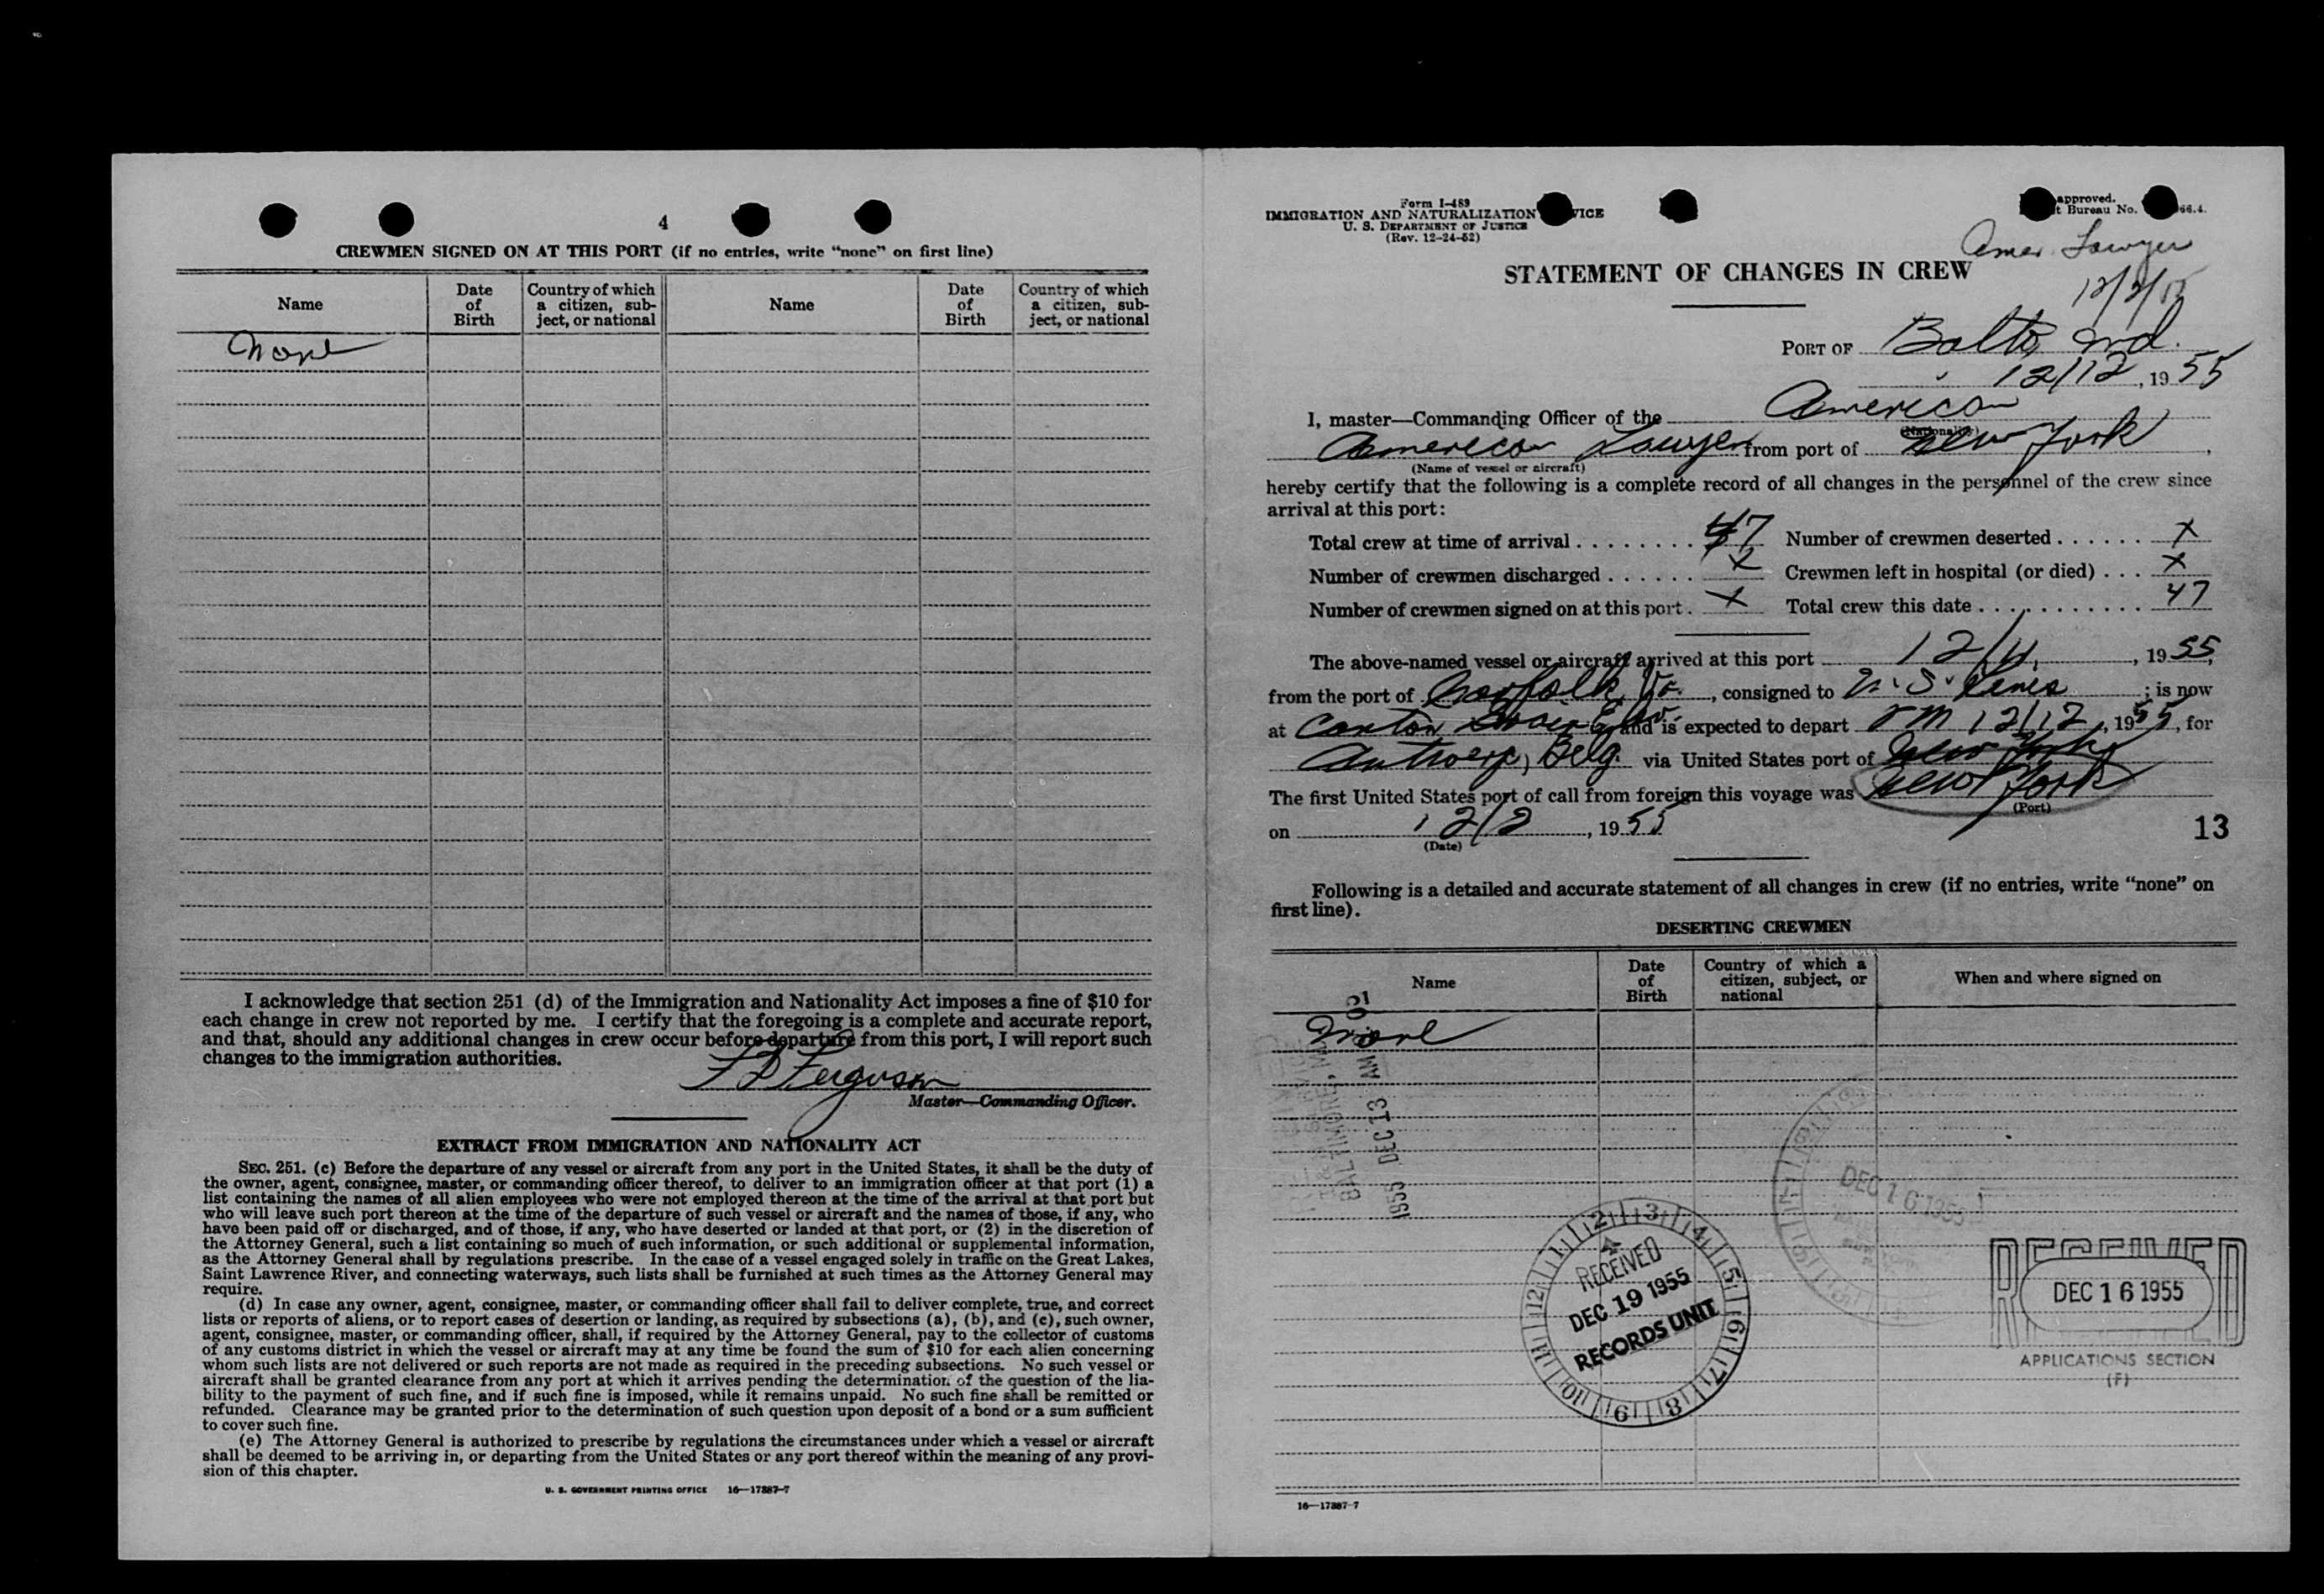 4
CREWMEN SIGNED ON AT THIS PORT (if no entries, write “none” on first line)
Name
Date of Birth
Country of which a citizen, sub-ject, or national
Name
Date of Birth
Country of which a citizen, sub-ject, or national
None
I acknowledge that section 251 (d) of the Immigration and Nationality Act imposes a fine of $10 for
each change in crew not reported by me. I certify that the foregoing is a complete and accurate report,
and that, should any additional changes in crew occur before departure from this port, I will report such
changes to the immigration authorities.
Ferguson
Master—Commanding Officer.
EXTRACT FROM IMMIGRATION AND NATIONALITY ACT
SEC. 251. (c) Before the departure of any vessel or aircraft from any port in the United States, it shall be the duty of
the owner, agent, consignee, master, or commanding officer thereof, to deliver to an immigration officer at that port (1) a
list containing the names of all alien employees who were not employed thereon at the time of the arrival at that port but
who will leave such port thereon at the time of the departure of such vessel or aircraft and the names of those, if any, who
have been paid off or discharged, and of those, if any, who have deserted or landed at that port, or (2) in the discretion of
the Attorney General, such a list containing so much of such information, or such additional or supplemental information,
as the Attorney General shall by regulations prescribe. In the case of a vessel engaged solely in traffic on the Great Lakes,
Saint Lawrence River, and connecting waterways, such lists shall be furnished at such times as the Attorney General may
require.
(d) In case any owner, agent, consignee, master, or commanding officer shall fail to deliver complete, true, and correct
lists or reports of aliens, or to report cases of desertion or landing, as required by subsections (a), (b), and (c), such owner,
agent, consignee, master, or commanding officer, shall, if required by the Attorney General, pay to the collector of customs
of any customs district in which the vessel or aircraft may at any time be found the sum of $10 for each alien concerning
whom such lists are not delivered or such reports are not made as required in the preceding subsections. No such vessel or
aircraft shall be granted clearance from any port at which it arrives pending the determination of the question of the lia-
bility to the payment of such fine, and if such fine is imposed, while it remains unpaid. No such fine shall be remitted or
refunded. Clearance may be granted prior to the determination of such question upon deposit of a bond or a sum sufficient
to cover such fine.
(e) The Attorney General is authorized to prescribe by regulations the circumstances under which a vessel or aircraft
shall be deemed to be arriving in, or departing from the United States or any port thereof within the meaning of any provi-
sion of this chapter.
U. S. GOVERNMENT PRINTING OFFICE 16—17887-7
Form I-489
IMMIGRATION AND NATURALIZATION VICE
U. S. DEPARTMENT OF JUSTICE
(Rev. 12-24-52)
approved.
t Bureau No. 66.4.
Amer. Lawyer
STATEMENT OF CHANGES IN CREW
PORT OF Balto, Md.
12/12, 1955
I, master—Commanding Officer of the American
(Nationality)
American Lawyer from port of New York,
(Name of vessel or aircraft)
hereby certify that the following is a complete record of all changes in the personnel of the crew since
arrival at this port:
Total crew at time of arrival . . . . . . . . 47 Number of crewmen deserted . . . . . . X
Number of crewmen discharged . . . . . . X Crewmen left in hospital (or died) . . . X
Number of crewmen signed on at this port . X Total crew this date . . . . . . . . . . . 47
The above-named vessel or aircraft arrived at this port 12/11, 1955,
from the port of Norfolk, Va., consigned to U. S. Lines; is now
at Canton and is expected to depart PM 12/12, 1955, for
Antwerp, Belg. via United States port of New York
The first United States port of call from foreign this voyage was New York
(Port)
on 12/2, 1955
(Date)
13
Following is a detailed and accurate statement of all changes in crew (if no entries, write “none” on
first line).
DESERTING CREWMEN
Name
Date of Birth
Country of which a citizen, subject, or national
When and where signed on
None
1955 DEC 13 AM
BALTIMORE
DEC 16 1955
RECEIVED
DEC 19 1955
RECORDS UNIT
RECEIVED
DEC 16 1955
APPLICATIONS SECTION
(F)
16—17887-7